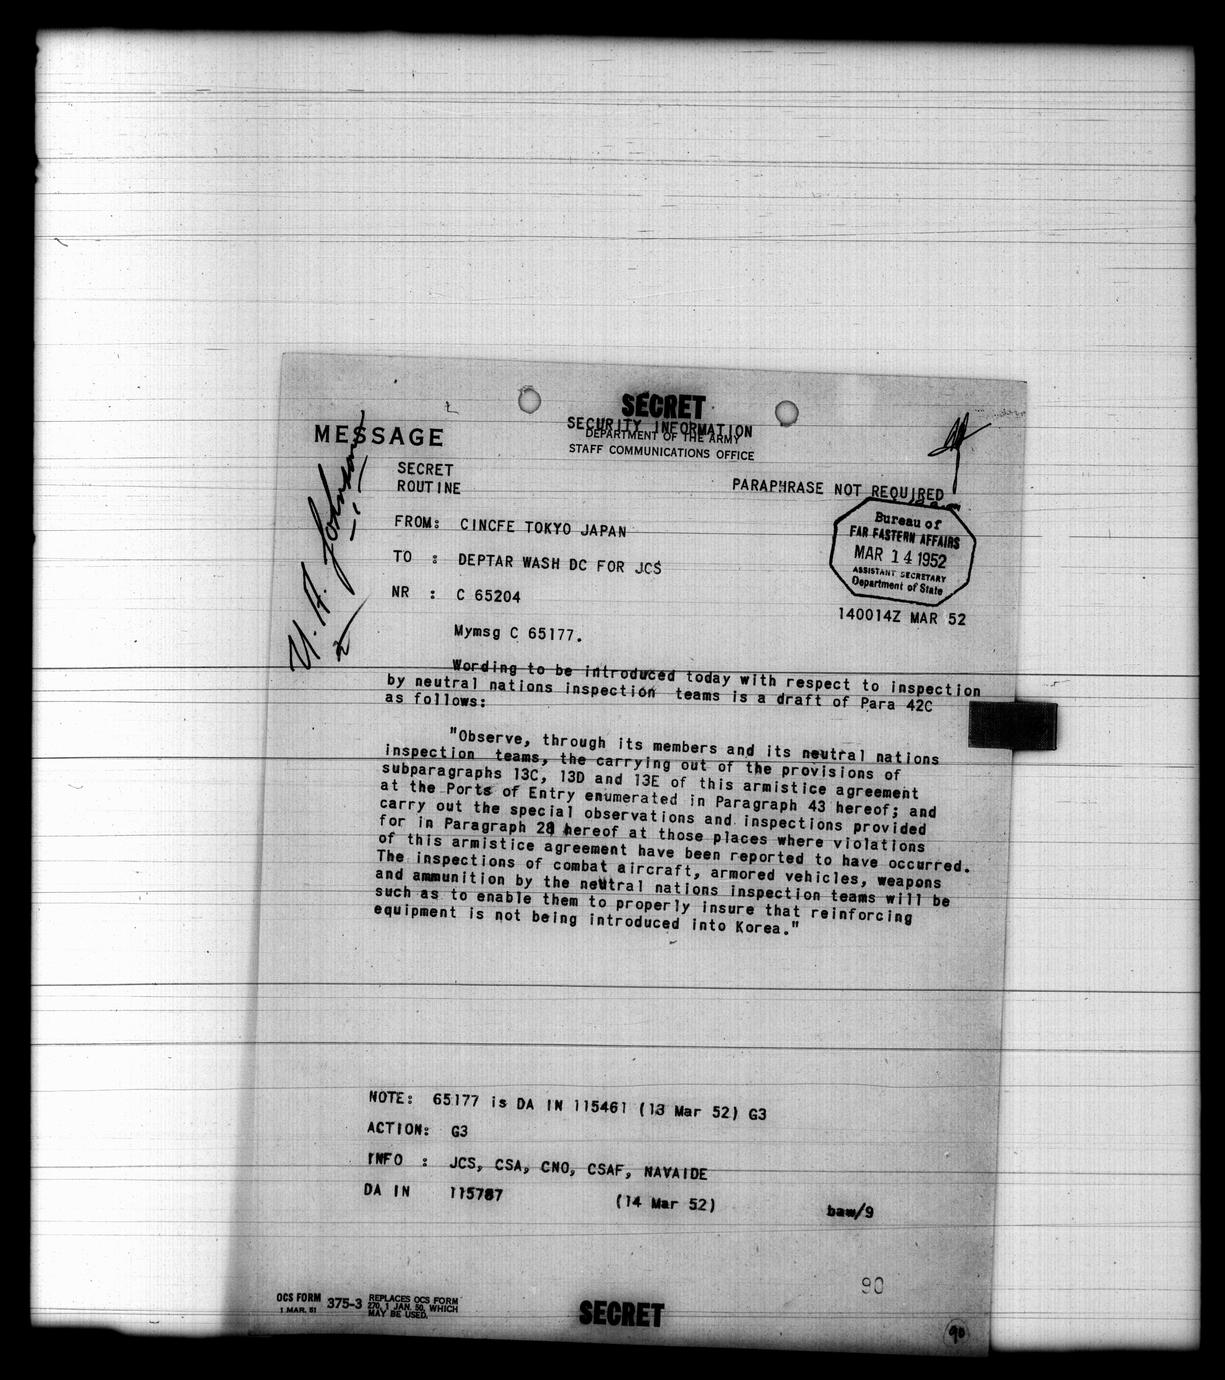 SECRET
SECURITY INFORMATION
MESSAGE
DEPARTMENT OF THE ARMY
STAFF COMMUNICATIONS OFFICE
SECRET
ROUTINE
PARAPHRASE NOT REQUIRED
U. A. Johnson
2
FROM: CINCFE TOKYO JAPAN
Bureau of
FAR EASTERN AFFAIRS
MAR 14 1952
ASSISTANT SECRETARY
Department of State
TO : DEPTAR WASH DC FOR JCS
NR : C 65204
140014Z MAR 52
Mymsg C 65177.
Wording to be introduced today with respect to inspection
by neutral nations inspection teams is a draft of Para 42C
as follows:
"Observe, through its members and its neutral nations
inspection teams, the carrying out of the provisions of
subparagraphs 13C, 13D and 13E of this armistice agreement
at the Ports of Entry enumerated in Paragraph 43 hereof; and
carry out the special observations and inspections provided
for in Paragraph 28 hereof at those places where violations
of this armistice agreement have been reported to have occurred.
The inspections of combat aircraft, armored vehicles, weapons
and ammunition by the neutral nations inspection teams will be
such as to enable them to properly insure that reinforcing
equipment is not being introduced into Korea."
NOTE: 65177 is DA IN 115461 (13 Mar 52) G3
ACTION: G3
INFO : JCS, CSA, CNO, CSAF, NAVAIDE
DA IN 115787 (14 Mar 52) baw/9
90
OCS FORM 375-3 REPLACES OCS FORM
1 MAR. 51 270, 1 JAN. 50, WHICH
MAY BE USED.
SECRET
90